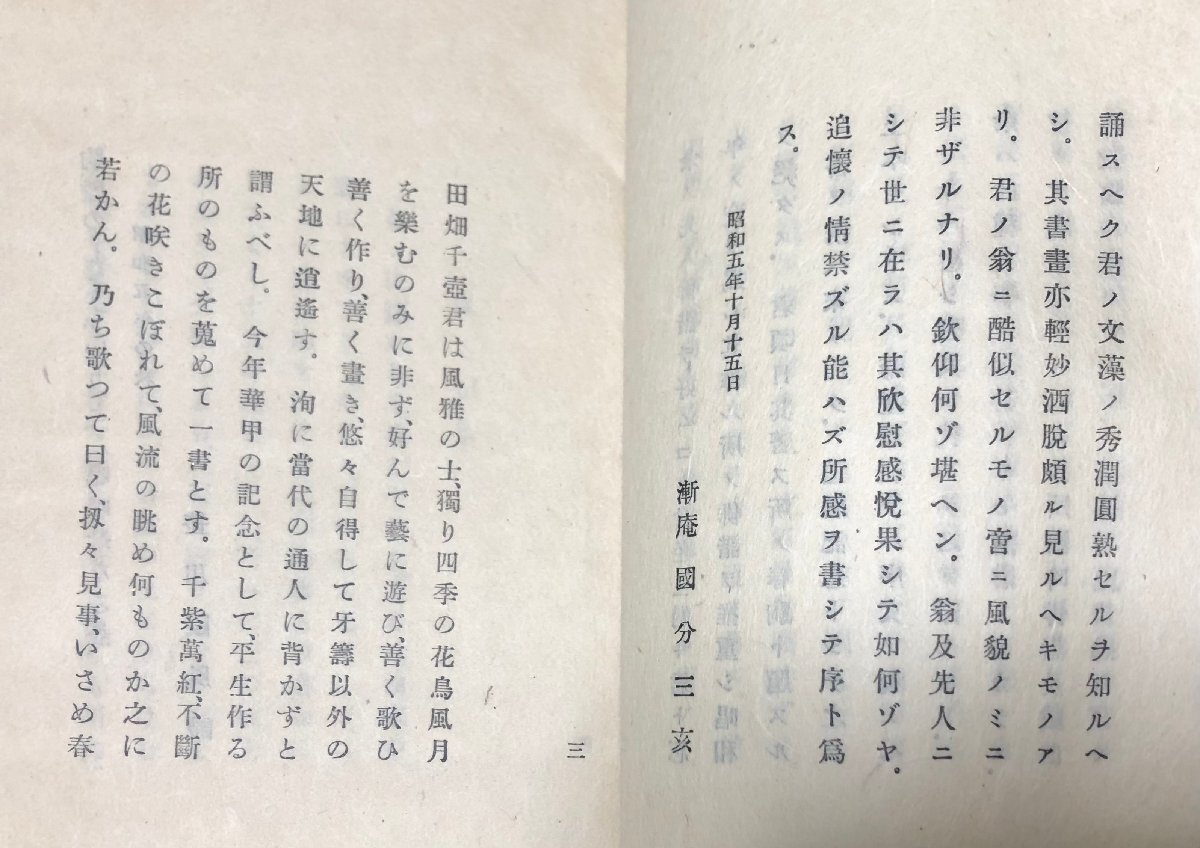 誦スヘク君ノ文藻ノ秀潤圓熟セルヲ知ルヘ
シ。其書畫亦輕妙洒脫頗ル見ルヘキモノア
リ。君ノ翁ニ酷似セルモノ啻ニ風貌ノミニ
非ザルナリ。欽仰何ゾ堪ヘン。翁及先人ニ
シテ世ニ在ラハ其欣慰感悅果シテ如何ゾヤ。
追懷ノ情禁ズル能ハズ所感ヲ書シテ序ト爲
ス。
昭和五年十月十五日
漸庵國分三亥
三
田畑千壺君は風雅の士、獨り四季の花鳥風月
を樂むのみに非ず、好んで藝に遊び、善く歌ひ
善く作り、善く畫き、悠々自得して牙籌以外の
天地に逍遙す。洵に當代の通人に背かずと
謂ふべし。今年華甲の記念として、平生作る
所のものを蒐めて一書とす。千紫萬紅、不斷
の花咲きこぼれて、風流の眺め何ものか之に
若かん。乃ち歌つて曰く、扨々見事、いさめ春